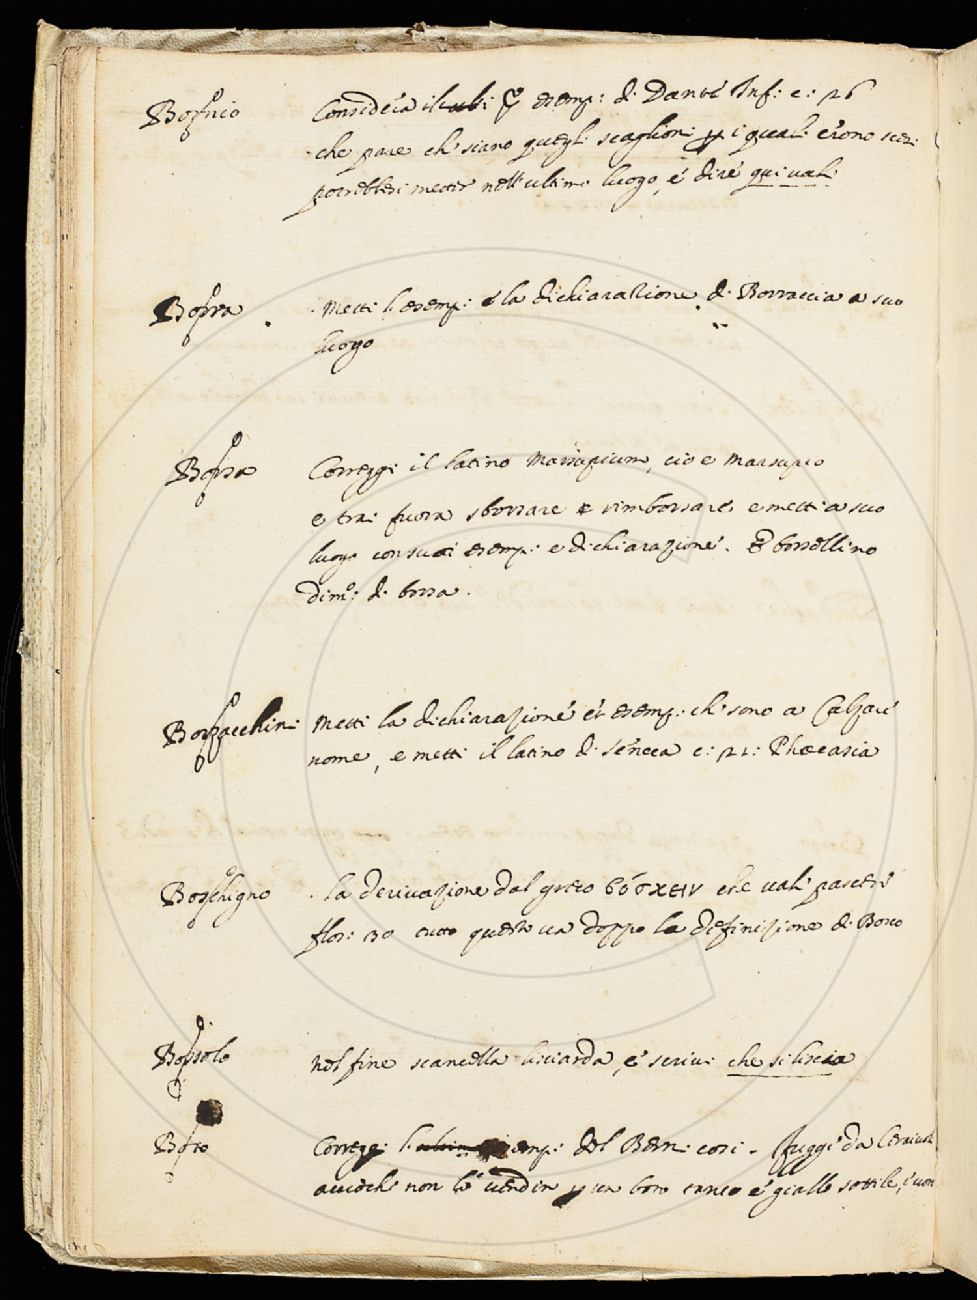 Considera il p esemp: di Dante Inf: c: 26
che pare ch' siano quegli scaglion p i quali
potrebbesi metter nell'ultimo luogo, e dire qui vali
Borra . Metti l' esemp: e la dichiarazione di Borraccia a suo
luogo
Borsa Corregg: il latino Marsupium, cioe Marsupio
e trai fuora sborsare e rimborsare e metti a suo
luogo con suoi esemp: e dichiarazione. e borsellino
dimo: di borsa.
Borzacchin: Metti la dichiarazione et esemp: ch' sono a Calzare
nome, e metti il latino di Seneca c: 21: Phæcasia
. la derivazione dal greco βόσχειν che vale pascere
flos: 30 tutto questo va doppo la definizione di Bosco
Bossolo Nel fine scancella liciarda, e scrivi che si liscia
Correggi l' esemp: del Bern: cosi. fuggi da
accioche non te vendin p un boto e giallo sottile, e